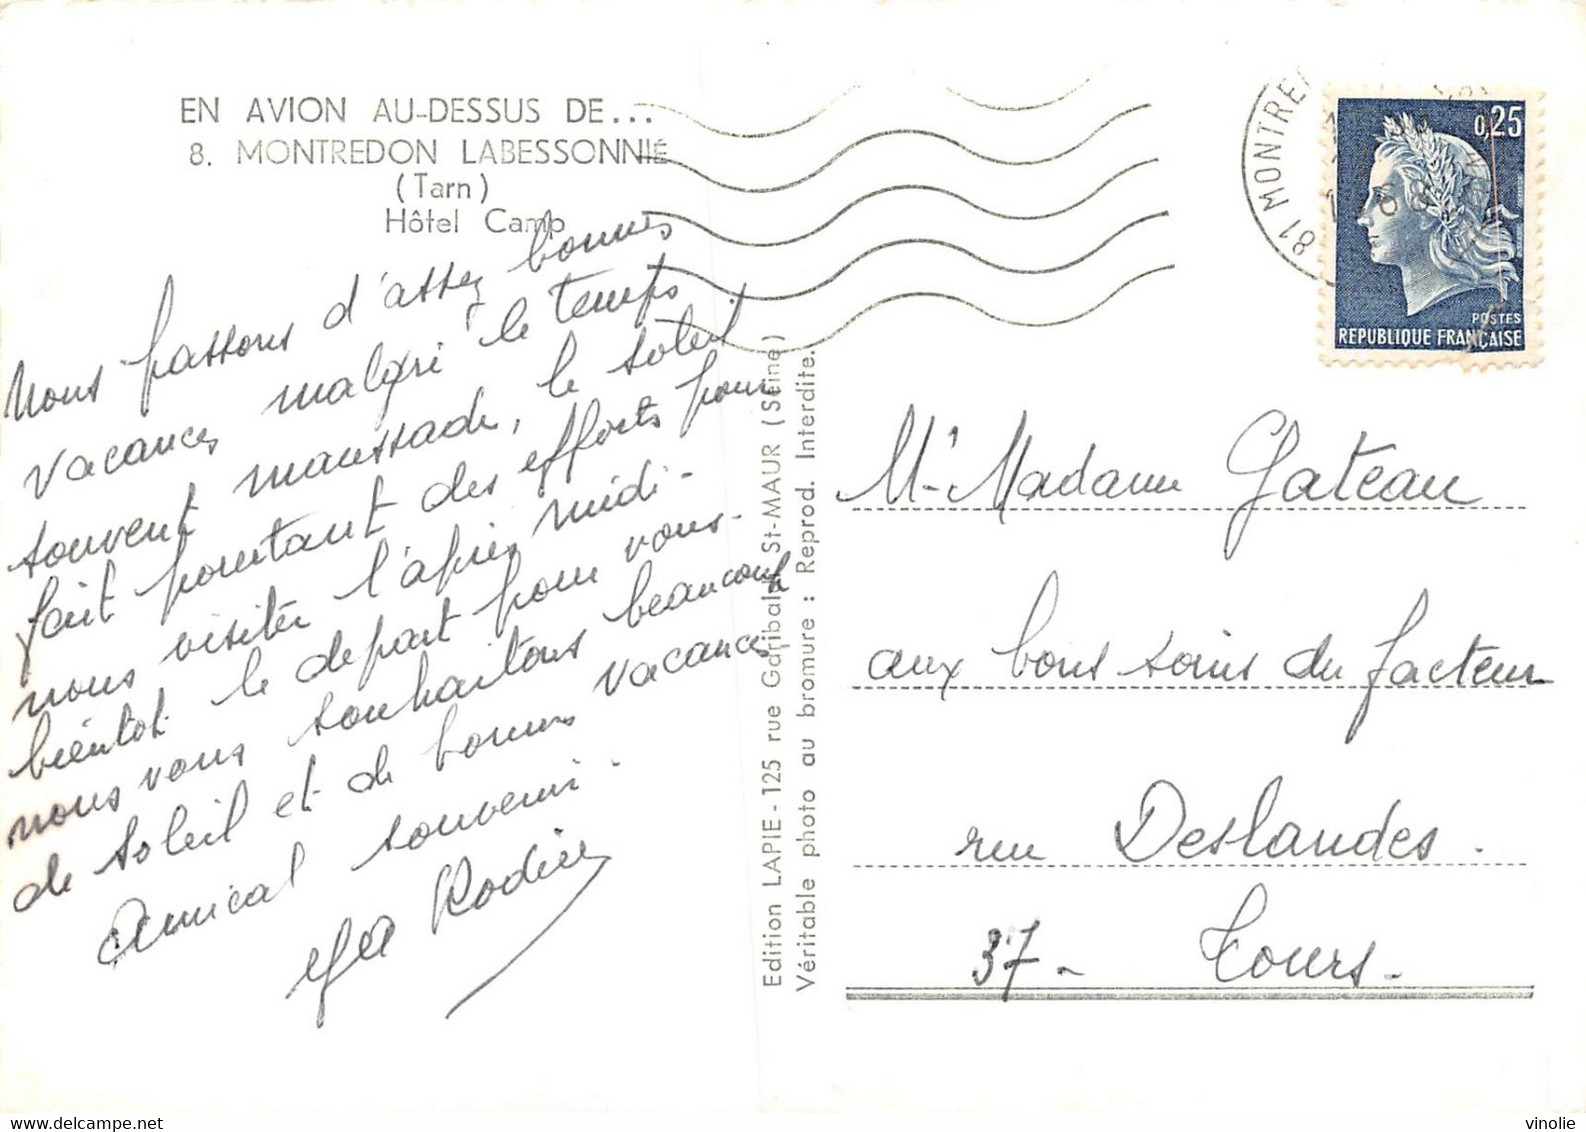 EN AVION AU-DESSUS DE...
8. MONTREDON LABESSONNIÉ
(Tarn)
Hôtel Camp
Nous passons d'assez bonnes
vacances malgré le temps
souvent maussade, le soleil
fait pourtant des efforts pour
nous visiter l'après midi -
bientôt le départ pour vous -
nous vous souhaitons beaucoup
de soleil et de bonnes vacances
Amical souvenir.
Edition LAPIE - 125 rue Garibaldi St-MAUR (Seine)
Véritable photo au bromure : Reprod. Interdite.
81 MONTRE
68
0,25
POSTES
REPUBLIQUE FRANÇAISE
Mr Madame Gateau
aux bons soins du facteur
rue Deslandes.
37 - Tours -
vinolie